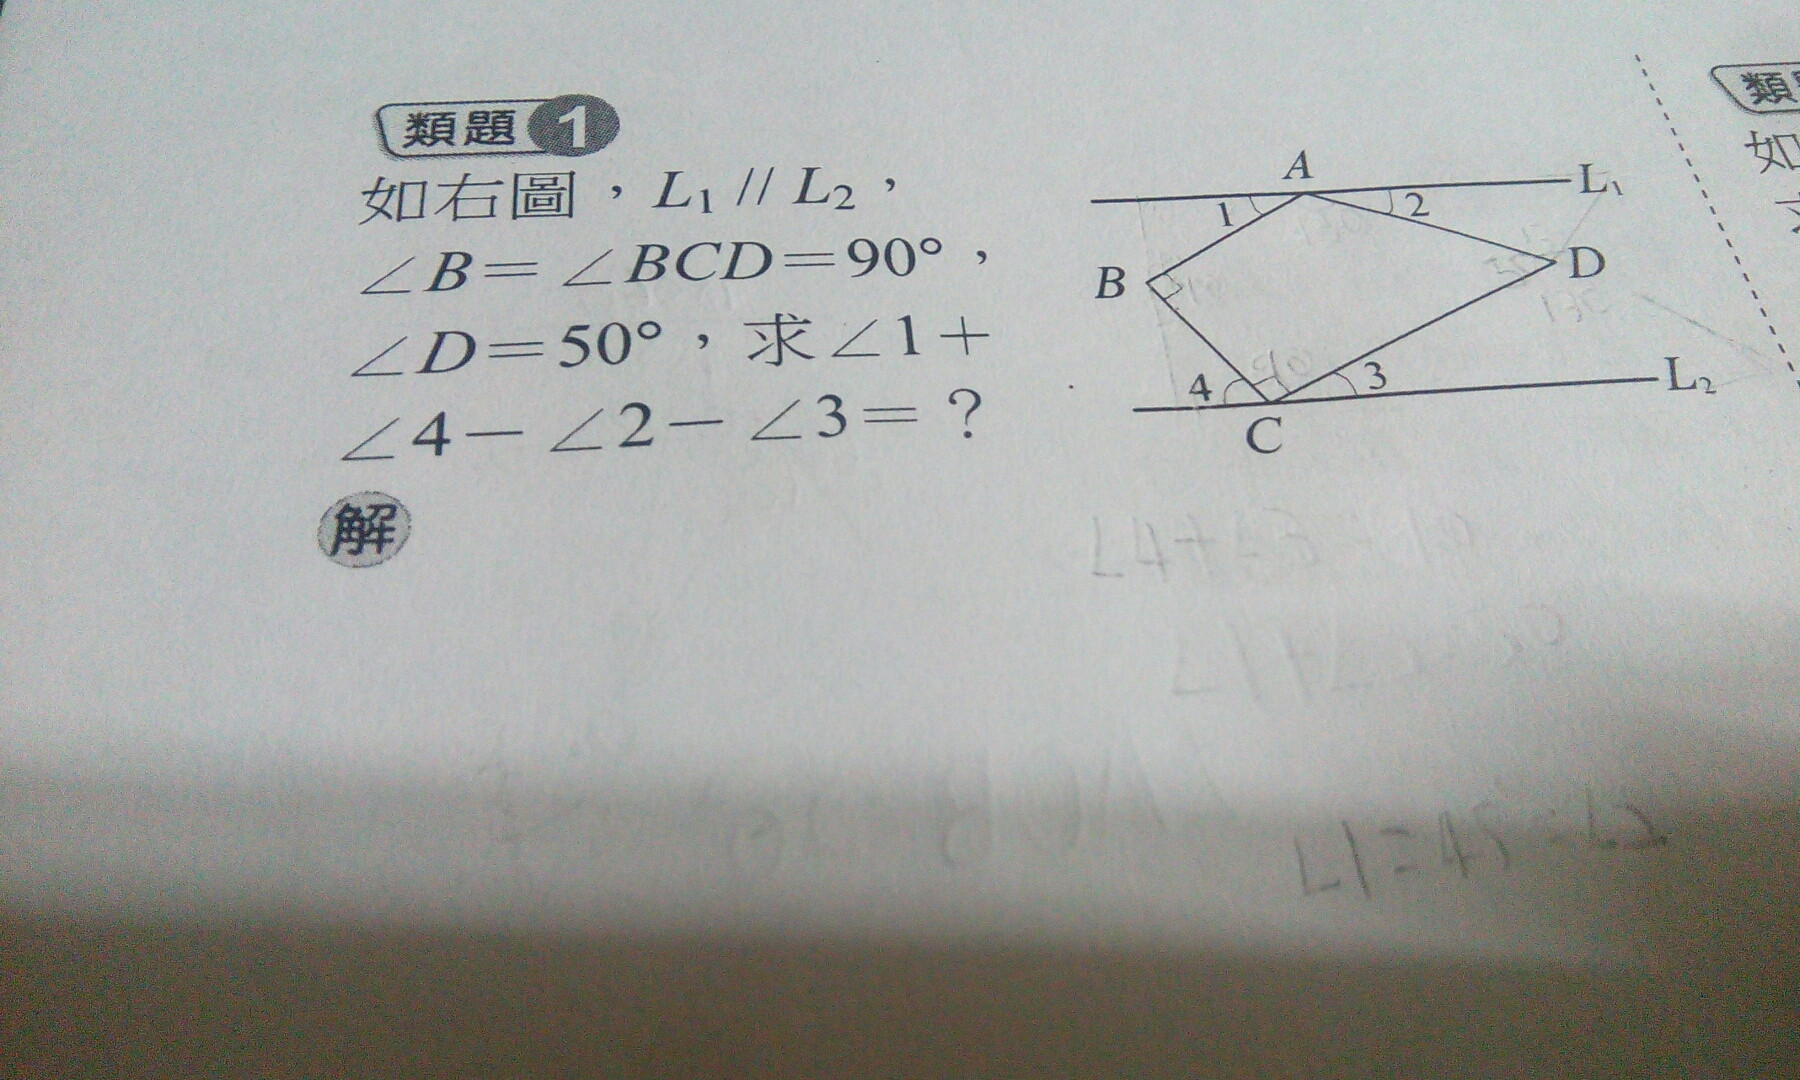 類題 1
如右圖，L₁ // L₂，
∠B＝∠BCD＝90°，
∠D＝50°，求∠1＋
∠4－∠2－∠3＝？
解
A
L₁
1
2
B
D
4
3
L₂
C
類
如